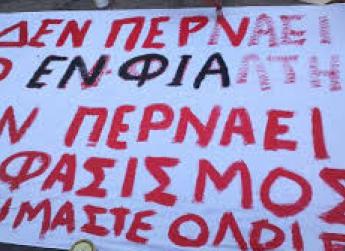 ΔΕΝ ΠΕΡΝΑΕΙ
Ο ΕΝΦΙΑΛΤΗ
Ν ΠΕΡΝΑΕΙ
ΦΑΣΙΣΜΟΣ
ΙΜΑΣΤΕ ΟΛΟΙ